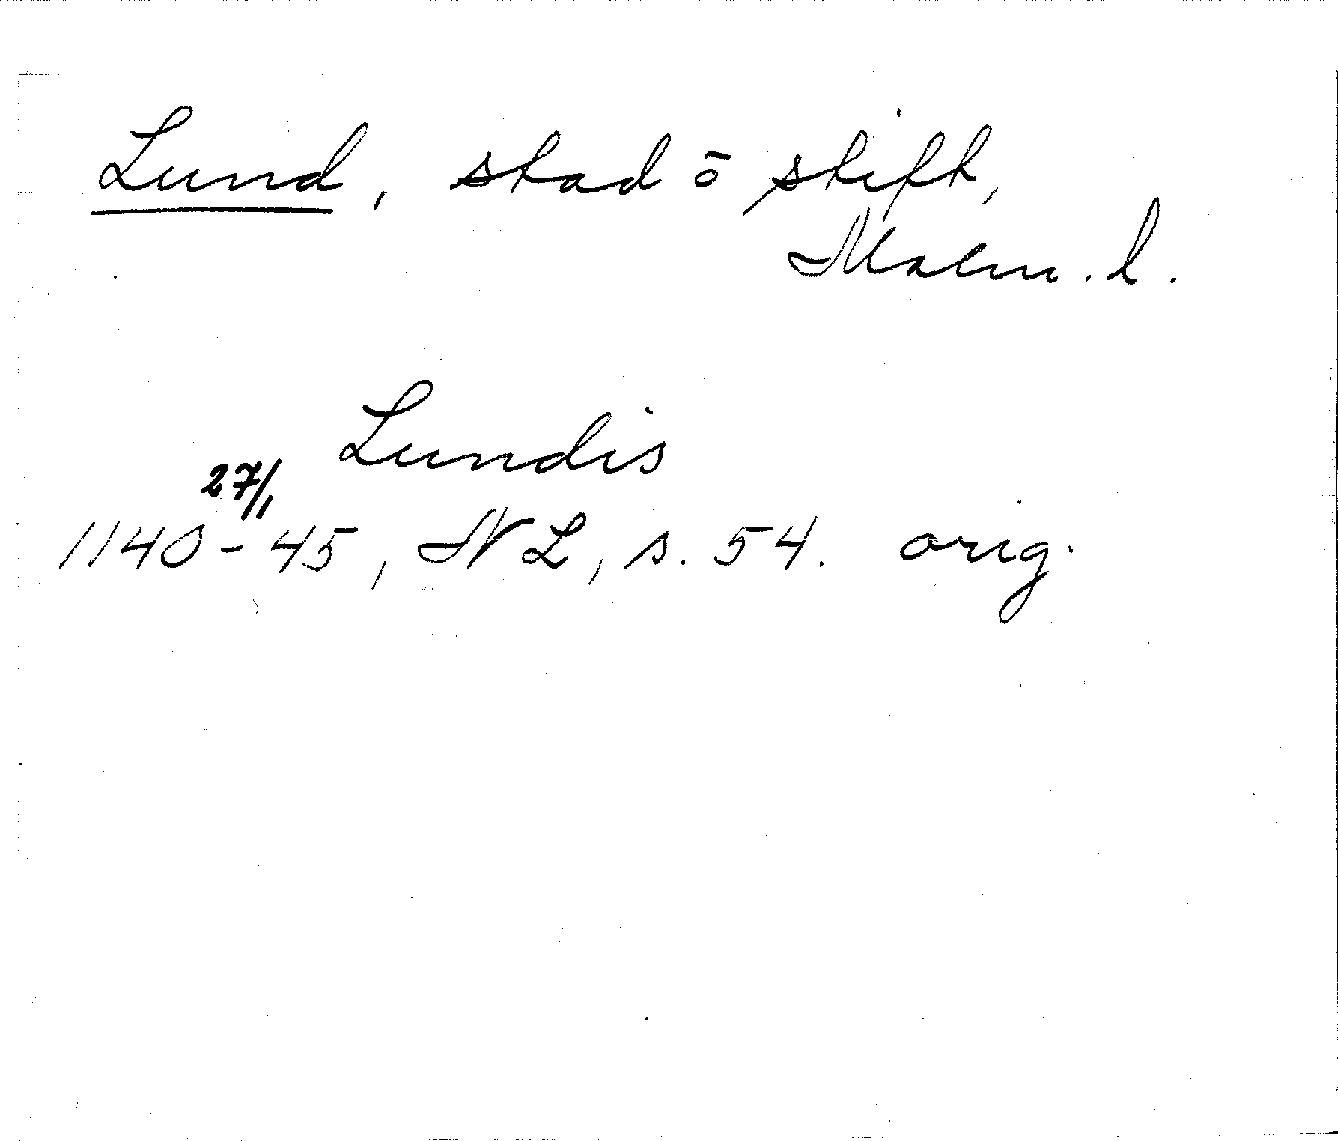 Lund, stad ō stift,
Malm. l.
Lundis
27/1
1140-45, N L, s. 54. orig.